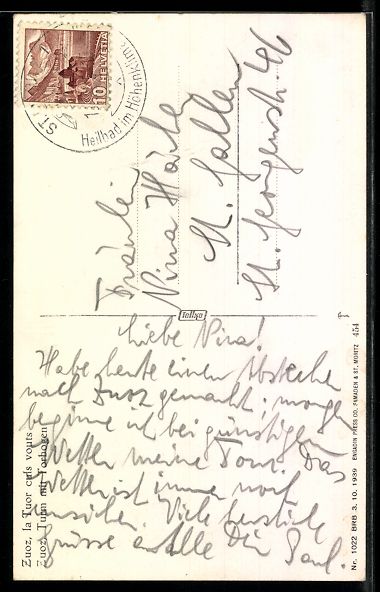 HELVETIA
10
ST.
Heilbad im Höhenklima
Fräulein
Nina
St. Gallen
St. Georgenstr. 46
Liebe Nina!
Habe heute einen Abstecher
nach Zuoz gemacht; morgen
beginne ich bei günstigem
Wetter meine Tour. Das
Wetter ist immer noch
unsicher. Viele herzliche
Grüsse an alle Dein Paul.
Zuoz, la Tuor culs vouts
Zuoz, Turm mit Torbogen
Nr. 1022 BRB 3. 10. 1939 ENGADIN PRESS CO. SAMADEN & ST. MORITZ 454